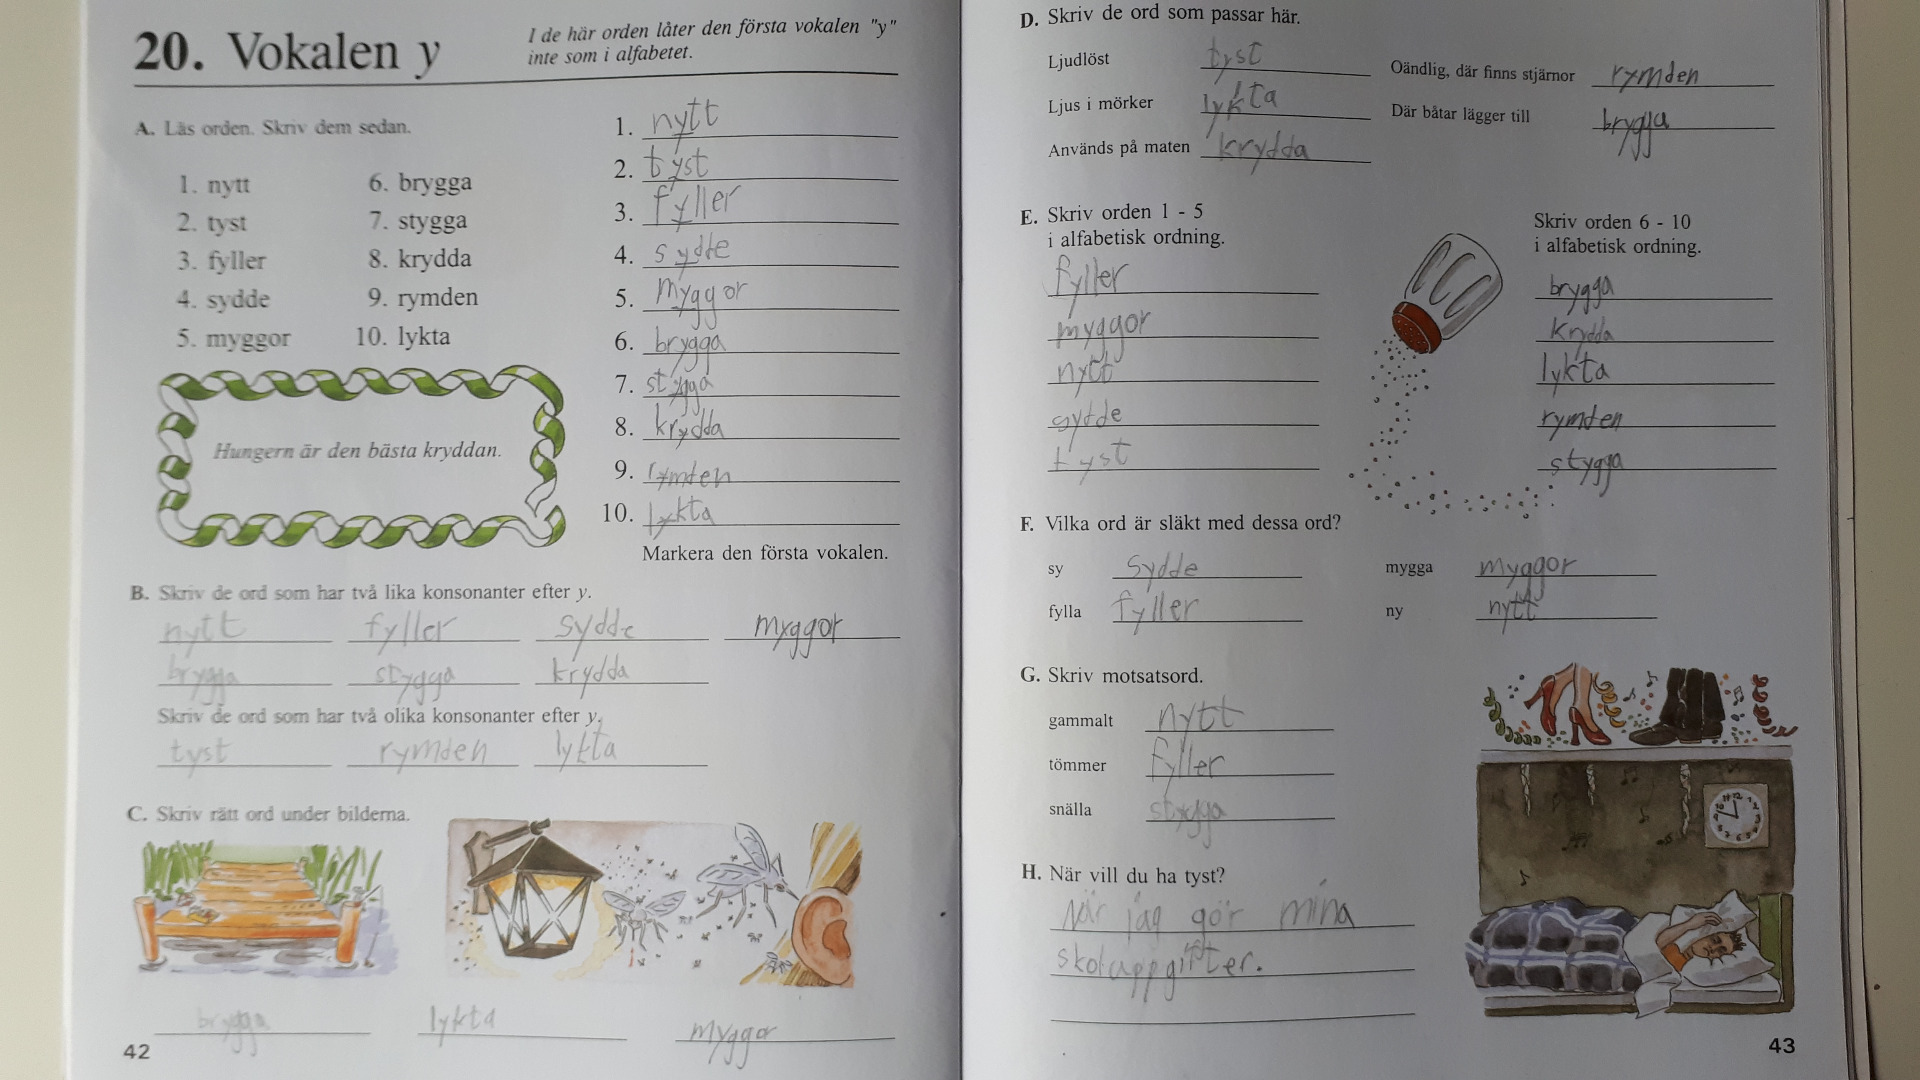 20. Vokalen y
I de här orden låter den första vokalen "y"
inte som i alfabetet.
A. Läs orden. Skriv dem sedan.
1. nytt
2. tyst
3. fyller
4. sydde
5. myggor
6. brygga
7. stygga
8. krydda
9. rymden
10. lykta
Hungern är den bästa kryddan.
1. nytt
2. tyst
3. fyller
4. sydde
5. myggor
6. brygga
7. stygga
8. krydda
9. rymden
10. lykta
Markera den första vokalen.
B. Skriv de ord som har två lika konsonanter efter y.
nytt fyller sydde myggor
brygga stygga krydda
Skriv de ord som har två olika konsonanter efter y.
tyst rymden lykta
C. Skriv rätt ord under bilderna.
brygga lykta myggor
42
D. Skriv de ord som passar här.
Ljudlöst tyst
Ljus i mörker lykta
Används på maten krydda
Oändlig, där finns stjärnor rymden
Där båtar lägger till brygga
E. Skriv orden 1 - 5
i alfabetisk ordning.
fyller
myggor
nytt
sydde
tyst
Skriv orden 6 - 10
i alfabetisk ordning.
brygga
krydda
lykta
rymden
stygga
F. Vilka ord är släkt med dessa ord?
sy sydde mygga myggor
fylla fyller ny nytt
G. Skriv motsatsord.
gammalt nytt
tömmer fyller
snälla stygga
H. När vill du ha tyst?
När jag gör mina
skoluppgifter.
43